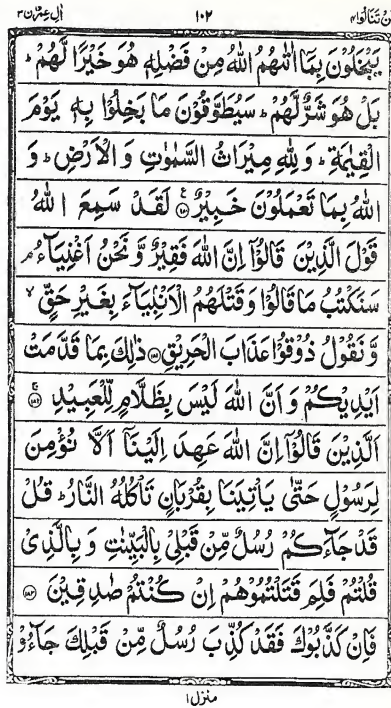 لن تنالوا ٤ ١٠٢ اٰل عمرٰن ٣
يَبْخَلُوْنَ بِمَاۤ اٰتٰىهُمُ اللّٰهُ مِنْ فَضْلِهٖ هُوَ خَيْرًا لَّهُمْ ؕ
بَلْ هُوَ شَرٌّ لَّهُمْ ؕ سَيُطَوَّقُوْنَ مَا بَخِلُوْا بِهٖ يَوْمَ
الْقِيٰمَةِ ؕ وَ لِلّٰهِ مِيْرَاثُ السَّمٰوٰتِ وَ الْاَرْضِ ؕ وَ
اللّٰهُ بِمَا تَعْمَلُوْنَ خَبِيْرٌ ﴿۱۸۰﴾ لَقَدْ سَمِعَ اللّٰهُ
قَوْلَ الَّذِيْنَ قَالُوْۤا اِنَّ اللّٰهَ فَقِيْرٌ وَّ نَحْنُ اَغْنِيَآءُ ۘ
سَنَكْتُبُ مَا قَالُوْا وَ قَتْلَهُمُ الْاَنْۢبِيَآءَ بِغَيْرِ حَقٍّ ۙ
وَّ نَقُوْلُ ذُوْقُوْا عَذَابَ الْحَرِيْقِ ﴿۱۸۱﴾ ذٰلِكَ بِمَا قَدَّمَتْ
اَيْدِيْكُمْ وَ اَنَّ اللّٰهَ لَيْسَ بِظَلَّامٍ لِّلْعَبِيْدِ ﴿۱۸۲﴾
اَلَّذِيْنَ قَالُوْۤا اِنَّ اللّٰهَ عَهِدَ اِلَيْنَاۤ اَلَّا نُؤْمِنَ
لِرَسُوْلٍ حَتّٰى يَاْتِيَنَا بِقُرْبَانٍ تَاْكُلُهُ النَّارُ ؕ قُلْ
قَدْ جَآءَكُمْ رُسُلٌ مِّنْ قَبْلِيْ بِالْبَيِّنٰتِ وَ بِالَّذِيْ
قُلْتُمْ فَلِمَ قَتَلْتُمُوْهُمْ اِنْ كُنْتُمْ صٰدِقِيْنَ ﴿۱۸۳﴾
فَاِنْ كَذَّبُوْكَ فَقَدْ كُذِّبَ رُسُلٌ مِّنْ قَبْلِكَ جَآءُوْ
منزل ١